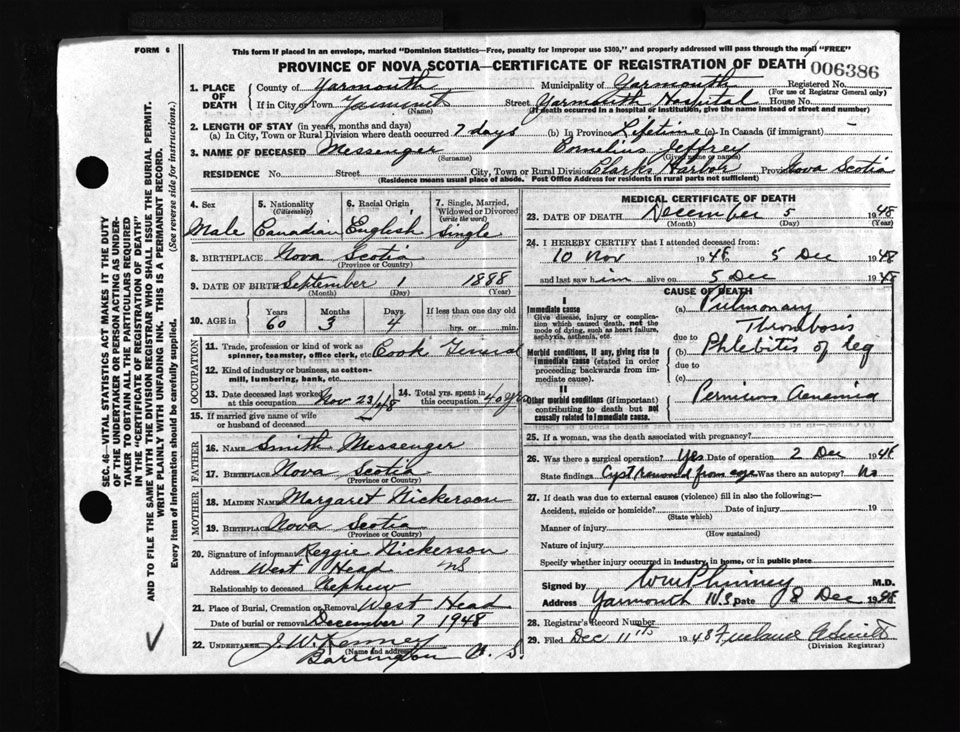 FORM 6
This form if placed in an envelope, marked "Dominion Statistics—Free, penalty for improper use $300," and properly addressed will pass through the mail "FREE"
PROVINCE OF NOVA SCOTIA—CERTIFICATE OF REGISTRATION OF DEATH
006386
1. PLACE OF DEATH
County of Yarmouth Municipality of Yarmouth Registered No.
(For use of Registrar General only)
If in City or Town Street Yarmouth Hospital House No.
(Name) (If death occurred in a hospital or institution, give the name instead of street and number)
2. LENGTH OF STAY (in years, months and days)
(a) In City, Town or Rural Division where death occurred 7 days (b) In Province Lifetime (c) In Canada (if immigrant) —
3. NAME OF DECEASED Messenger Cornelius Jeffrey
(Surname) (Given name or names)
RESIDENCE No. Street City, Town or Rural Division Clarks Harbor Province Nova Scotia
(Residence means usual place of abode. Post Office Address for residents in rural parts not sufficient)
4. Sex 5. Nationality (Citizenship) 6. Racial Origin 7. Single, Married, Widowed or Divorced (write the word)
Male Canadian English Single
8. BIRTHPLACE Nova Scotia
(Province or Country)
9. DATE OF BIRTH September 1 1888
(Month) (Day) (Year)
10. AGE in Years Months Days If less than one day old
60 3 4 hrs. or min.
OCCUPATION
11. Trade, profession or kind of work as spinner, teamster, office clerk, etc. Cook General
12. Kind of industry or business, as cotton-mill, lumbering, bank, etc.
13. Date deceased last worked at this occupation Nov 23/48 14. Total yrs. spent in this occupation 40 yrs
15. If married give name of wife or husband of deceased —
FATHER
16. NAME Smith Messenger
17. BIRTHPLACE Nova Scotia
(Province or Country)
MOTHER
18. MAIDEN NAME Margaret Nickerson
19. BIRTHPLACE Nova Scotia
(Province or Country)
20. Signature of informant Reggie Nickerson
Address West Head NS
Relationship to deceased Nephew
21. Place of Burial, Cremation or Removal West Head
Date of burial or removal December 7 1948
22. UNDERTAKER J. W. Kenney
(Name and address)
Barrington N. S.
MEDICAL CERTIFICATE OF DEATH
23. DATE OF DEATH December 5 1948
(Month) (Day) (Year)
24. I HEREBY CERTIFY that I attended deceased from:
10 Nov 1948 5 Dec 1948
and last saw him alive on 5 Dec 1948
CAUSE OF DEATH
I
Immediate cause
Give disease, injury or complication which caused death, not the mode of dying, such as heart failure, asphyxia, asthenia, etc.
(a) Pulmonary Thrombosis
due to
Morbid conditions, if any, giving rise to immediate cause (stated in order proceeding backwards from immediate cause).
(b) Phlebitis of leg
due to
(c)
II
Other morbid conditions (if important) contributing to death but not causally related to immediate cause.
Pernicious Aenemia
25. If a woman, was the death associated with pregnancy?
26. Was there a surgical operation? Yes Date of operation 2 Dec 1948
State findings Cyst removed from eye Was there an autopsy? No
27. If death was due to external causes (violence) fill in also the following:—
Accident, suicide or homicide? Date of injury 19
(State which)
Manner of injury
(How sustained)
Nature of injury
Specify whether injury occurred in industry, in home, or in public place
Signed by Wm Phinney M.D.
Address Yarmouth N.S. Date 8 Dec 1948
28. Registrar's Record Number
29. Filed Dec 11th 1948
(Division Registrar)
SEC. 46—VITAL STATISTICS ACT MAKES IT THE DUTY
OF THE UNDERTAKER OR PERSON ACTING AS UNDER-
TAKER TO OBTAIN ALL THE PARTICULARS REQUIRED
IN THE "CERTIFICATE OF REGISTRATION OF DEATH"
AND TO FILE THE SAME WITH THE DIVISION REGISTRAR WHO SHALL ISSUE THE BURIAL PERMIT.
WRITE PLAINLY WITH UNFADING INK. THIS IS A PERMANENT RECORD.
Every item of information should be carefully supplied. (See reverse side for instructions.)